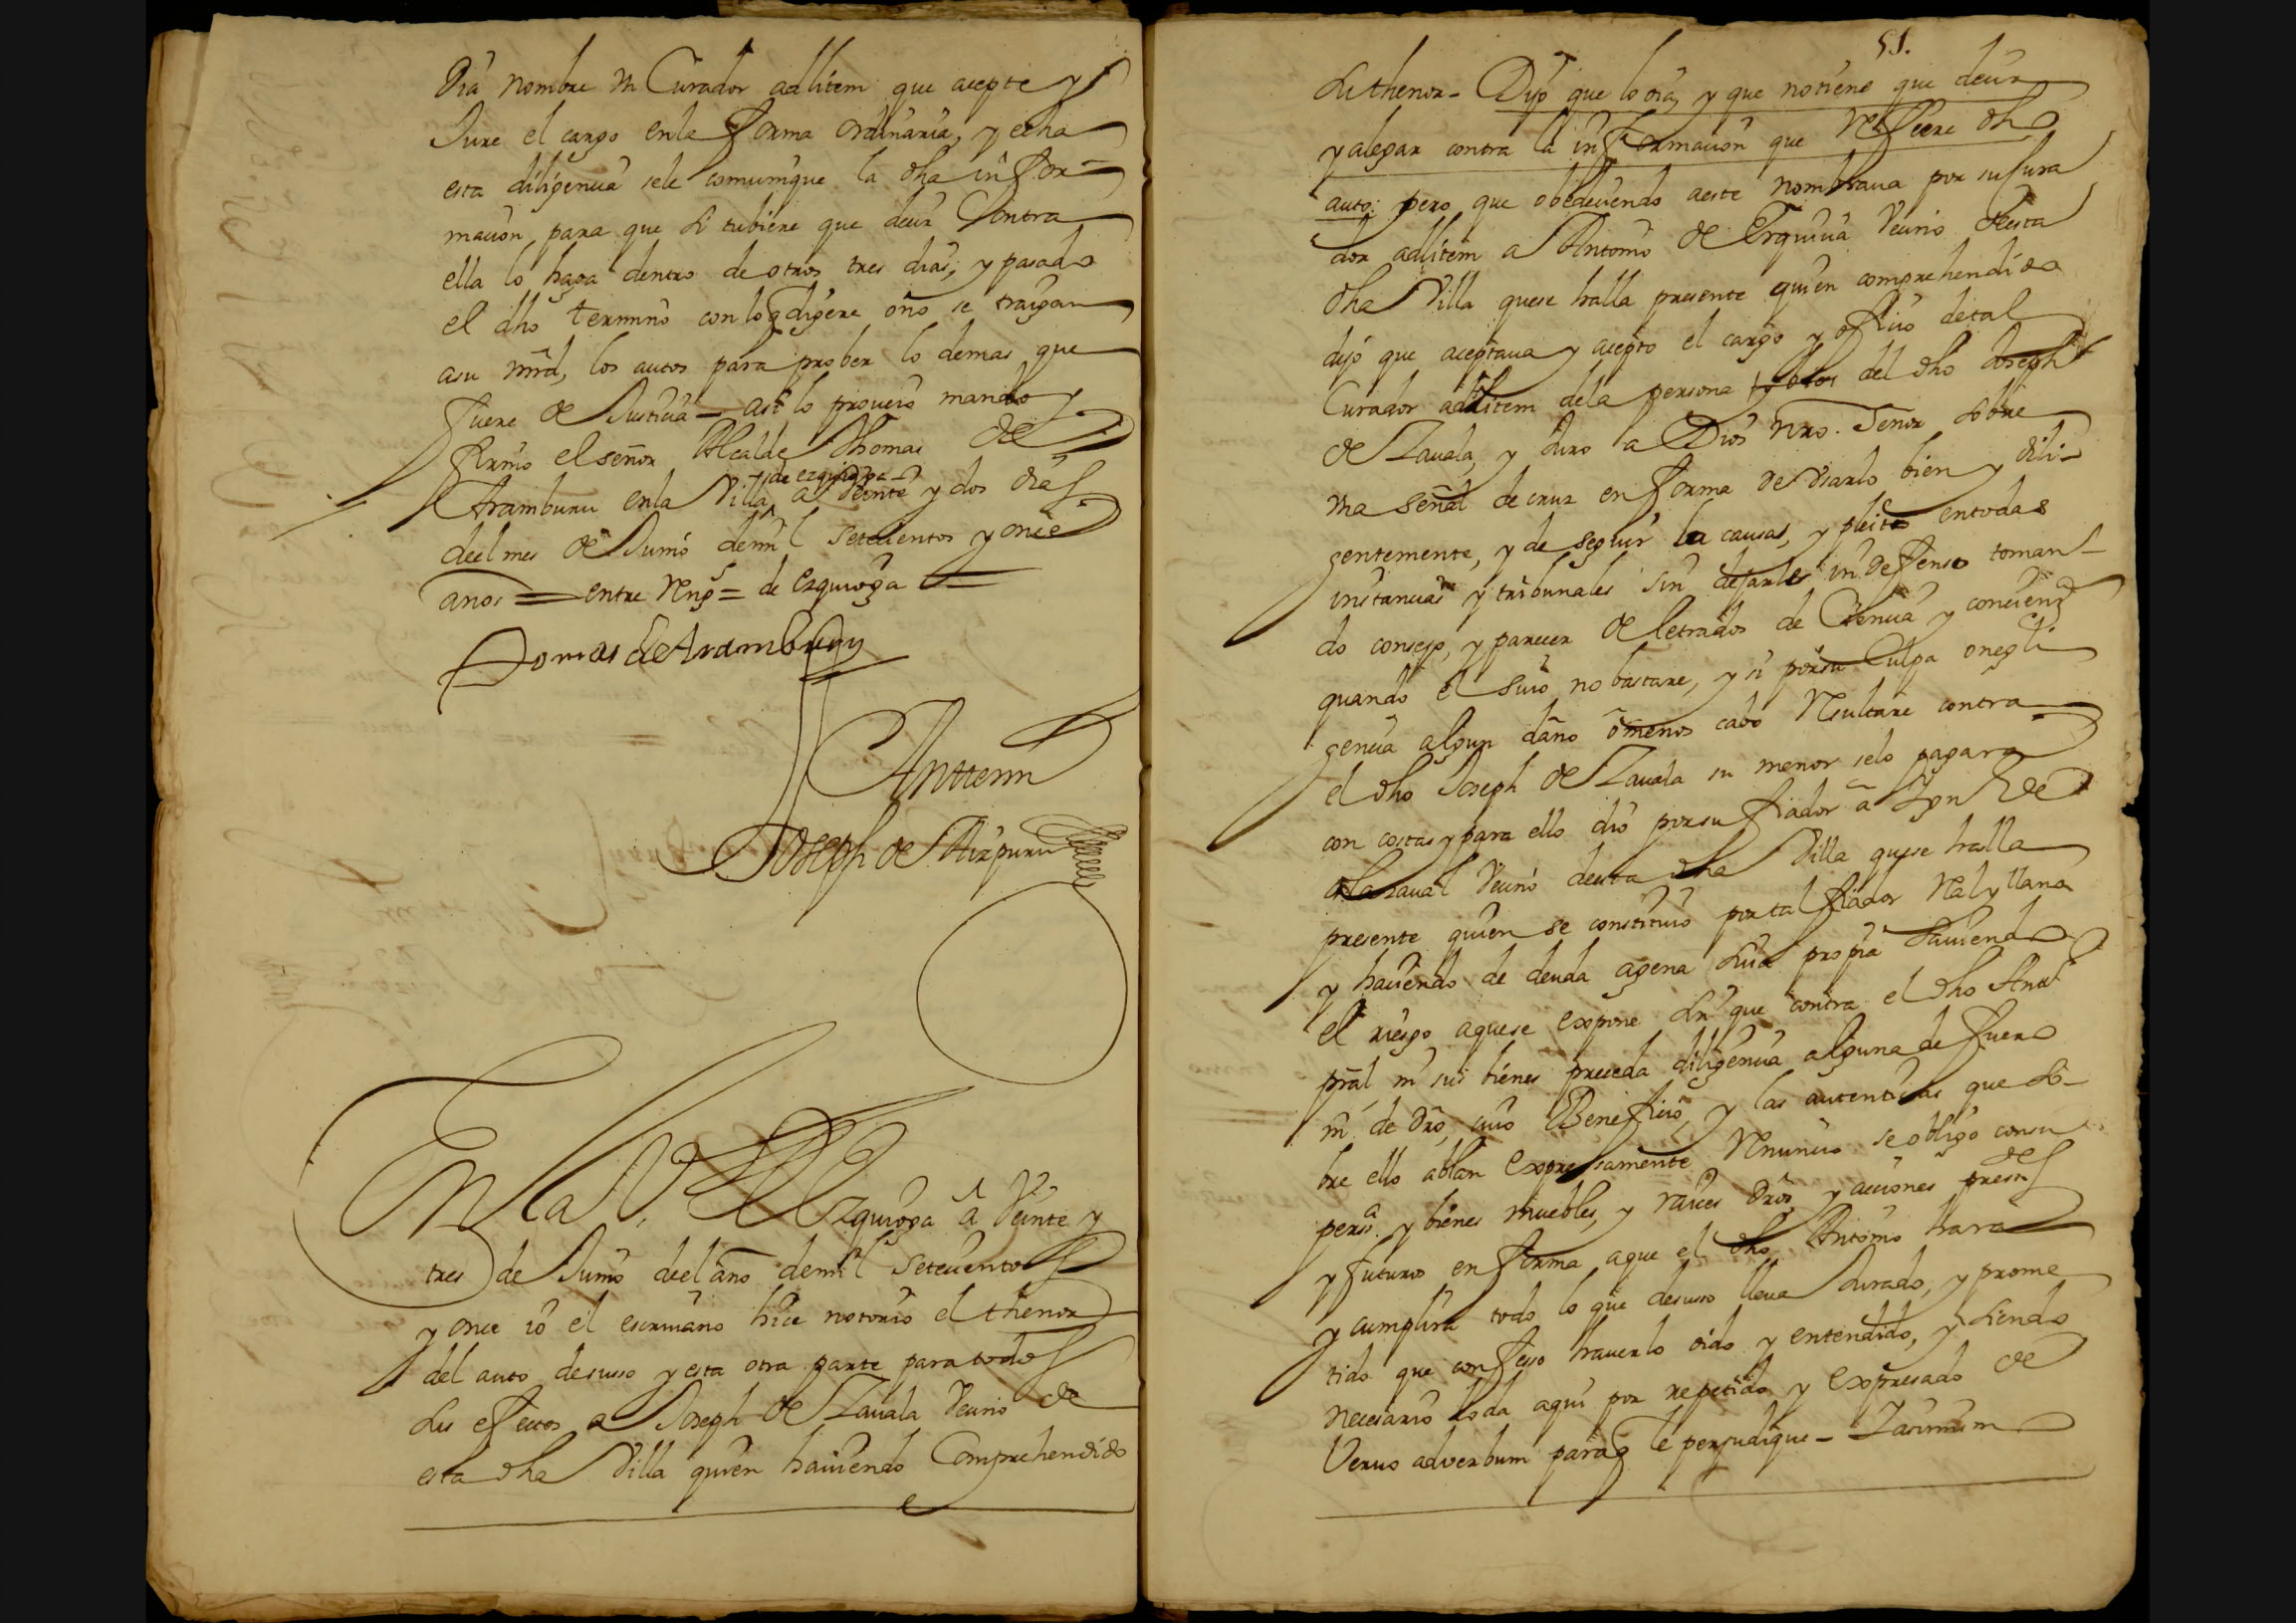 Dia nombre Un Curador adlitem que acepte y
Jure el cargo enla forma ordinaria, y echa
esta diligencia sele comunique la dha infor=
macion para que si tubiere que decir Contra
ella lo haga dentro de otros tres dias; y pasado
el dho termino con lo q digere oño se traigan
asu mrd, los autos para prober lo demas que
fuere de Justicia = asi lo proueio mando y
firmo el señor Alcalde Thomas de
de ezquioga
Aramburu enla Villa a Veinte y dos dias
deel mes de Junio demil setecientos y once
anos = entre Rengs = de ezquioga =
Tomas de Aramburu
Anttemi
Joseph de Aizpuru
En la Villa de Ezquioga â Veinte y
tres de Junio deel año demil setecientos
y once io el escriuano hice notorio el thenor
del auto desusso y esta otra parte para todos
sus efectos a Joseph de Zauala Vecino de
esta dha Villa quien hauiendo Comprehendido
51.
su thenor - Dijo que lo oia, y que notiene que decir
y alegar contra la informacion que Refiere dho
auto: pero que obedeciendo aeste nombraua por su Cura
dor adlitem a Antonio de Erquicia Vecino deesta
dha Villa quese halla presente quien comprehendido
dijo que aceptaua y acepto el cargo y oficio detal
Curador adlitem dela persona y bienes del dho Joseph
de Zauala, y Juro a Dios nro. Señor sobre
Una señal de cruz en forma de Usarlo bien y dili-
gentemente, y de seguir la causas, y pleitos entodas
instancias y tribunales sin dejarle indeffenso toman-
do consejo, y parecer de letrados de Ciencia y concienza
quando el suio no bastare, y si por su Culpa o negli
gencia algun daño o menos cabo Resultare contra
el dho Joseph de Zauala su menor selo pagara
con costas y para ello dio por su fiador â Ygn de
alzaual Vecino deesta dha Villa quese halla
presente quien se constituio por tal fiador Real y llana
y haciendo de deuda agena suia propia Sauiendo
el riesgo aquese expone sin que contra el dho Anto
pral, ni sus bienes preceda diligencia alguna de fuero
ni de dro, cuio Beneficio, y las autenticas que so-
bre ello ablan expresamente Renuncio se obligo con su
persa. y bienes muebles, y raices dros, y acciones presentes
y futuros en forma aque el dho Antonio hara
y cumplira todo lo que desuso lleua Jurado, y prome
tido que confeso hauerlo oido y entendido, y siendo
necesario loda aqui por repetido y expresado de
Veruo adverbum para q le perjudique - Yasimismo